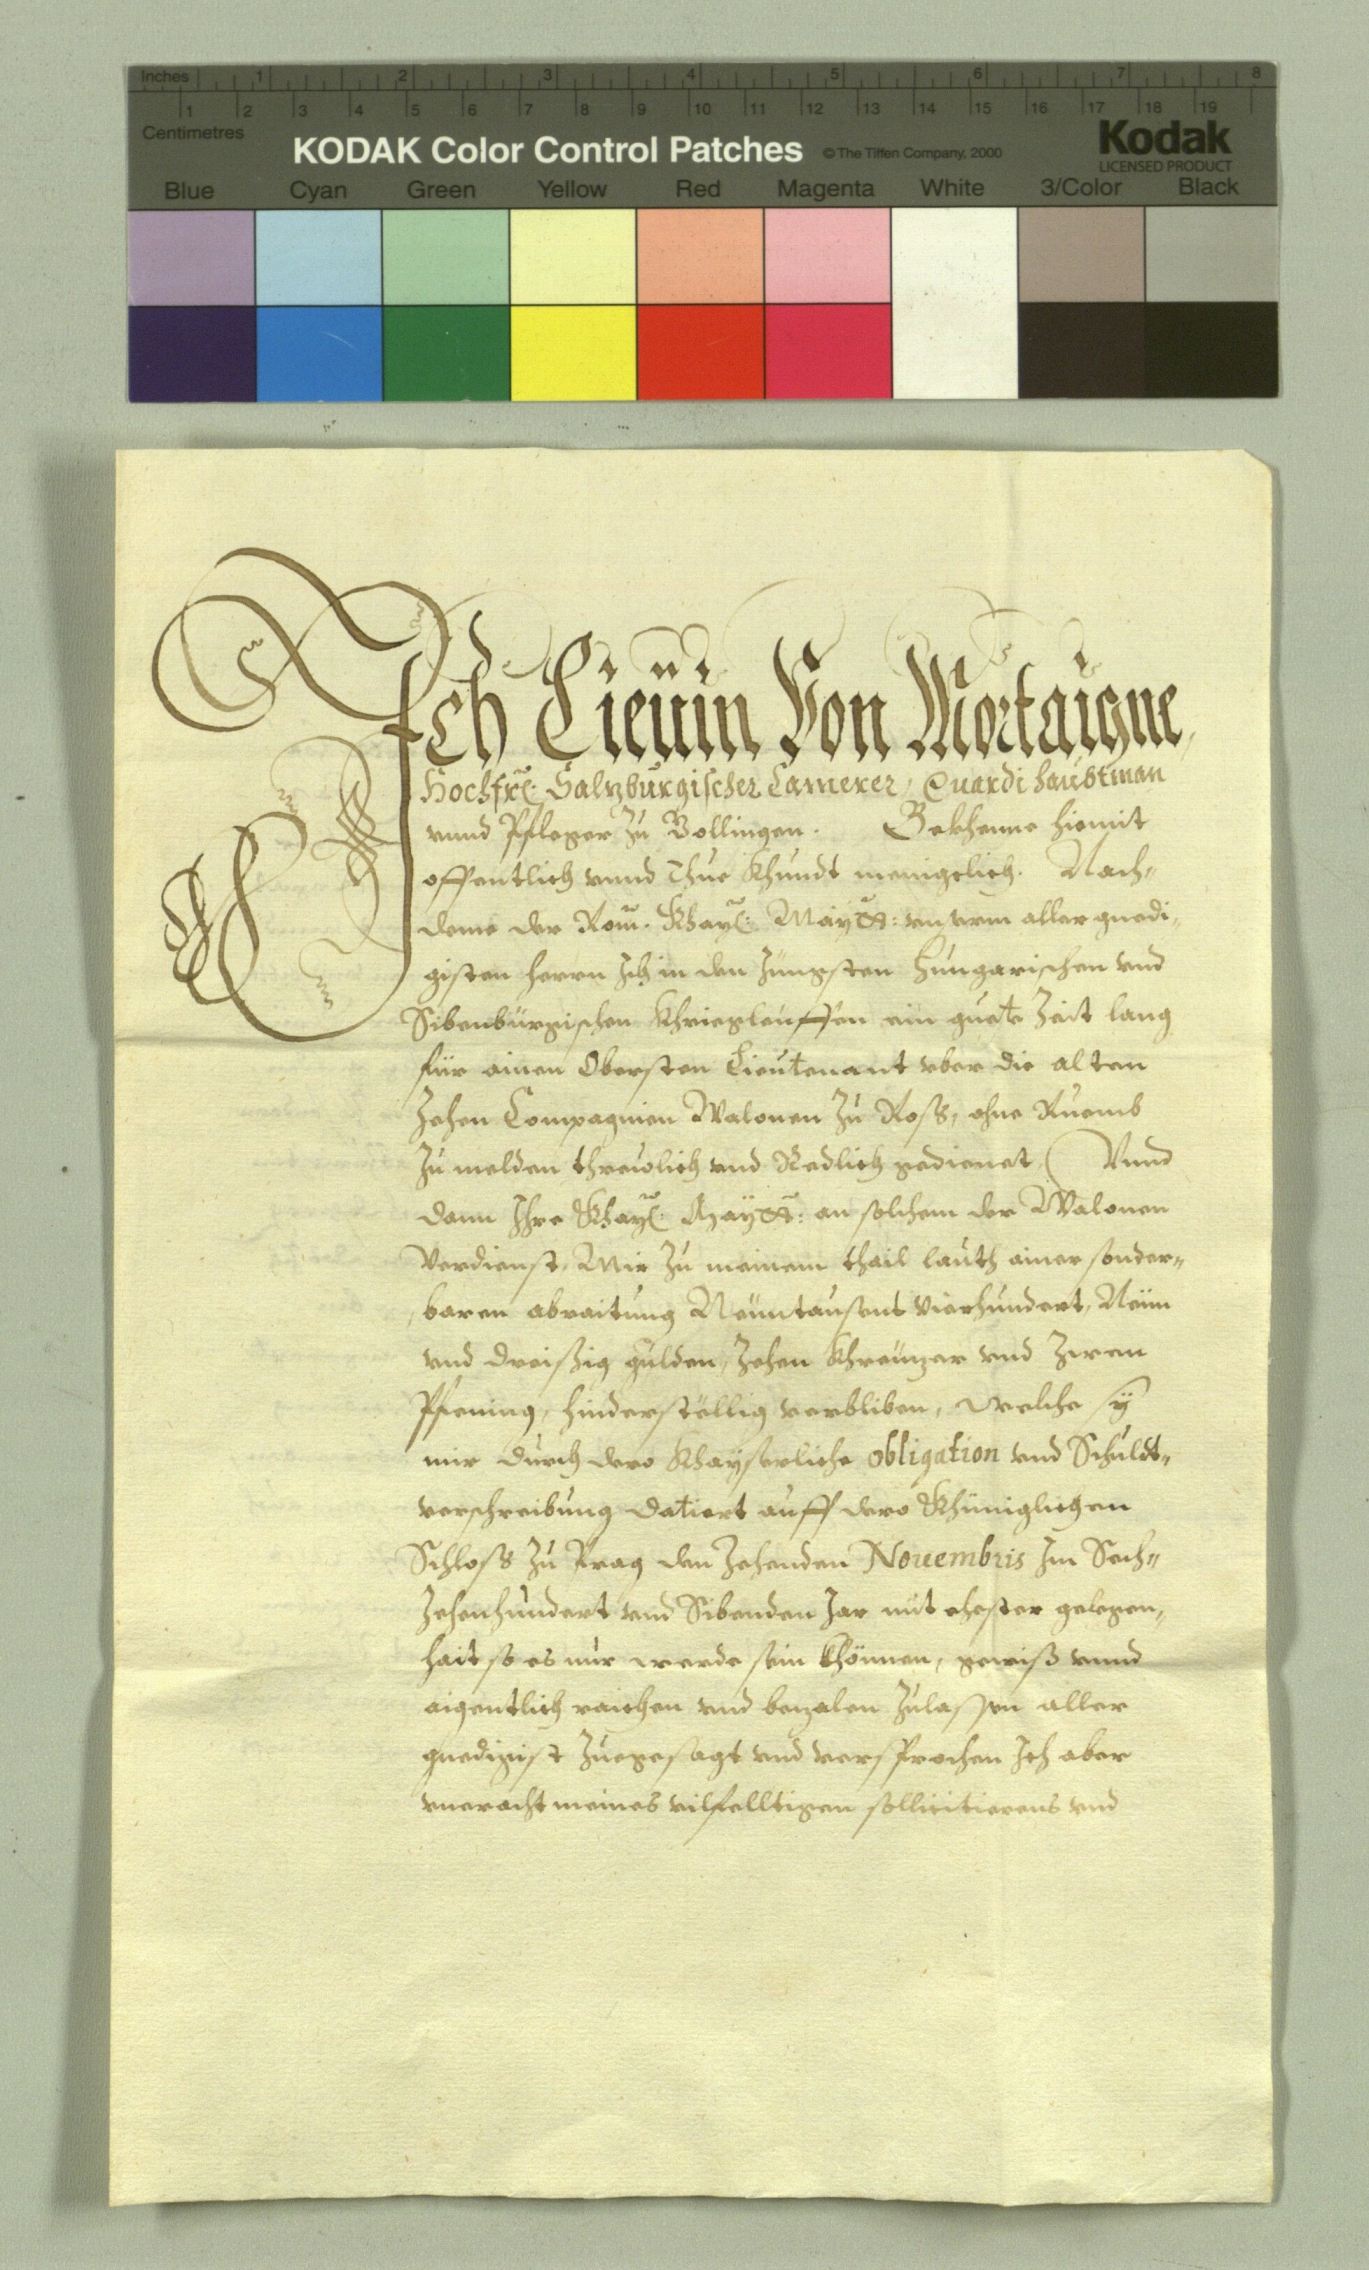 Inches 1 2 3 4 5 6 7 8
1 2 3 4 5 6 7 8 9 10 11 12 13 14 15 16 17 18 19
Centimetres
KODAK Color Control Patches © The Tiffen Company, 2000 Kodak
LICENSED PRODUCT
Blue Cyan Green Yellow Red Magenta White 3/Color Black
Ich Lieuin Von Mortaigne,
Hochfrl: Salzburgischer Camerer, Quardi haubtman
vnnd Pfleger Zu Bekhenne hiemit
offentlich vnnd Thue khundt menigclich. Nach„
deme der Röm. Khayl: Mayst: vnserm aller gnedi„
gisten herrn Ich in den Jüngsten Hungarischen vnd
Sibenbürgischen Khriegsleuffen ein guete Zeit lang
für ainen Obersten Lieutenant vber die alten
Zehen Compagnien Walonen Zu Roß, ohne Ruemb
Zu melden threwlich vnd Redlich gedienet, Vnnd
dann Ihre Khayl: Mayst: an solchem der Walonen
Verdienst, Mir Zu meinem thail lauth ainer sonder„
baren abraitung Neüntausent vierhundert, Neün
vnd dreissig gulden, Zehen Khreuzer vnd Zwen
Pfening, hinderstöllig verbliben, welche sÿ
mir durch dero Khayserliche obligation vnd Schuldt„
verschreibung datiert auff dero Khüniglichen
Schloß Zu Prag den Zehenden Nouembris Im Sech„
Zehenhundert vnd Sibenden Jar mit ehester gelegen„
hait so es nur werde sein khönnen, gewiß vnnd
aigentlich raichen vnd bezalen Zulassen aller
gnedigist Zuegesagt vnd versprochen Ich aber
vneracht meines vilfelltigen sollicitierens vnd